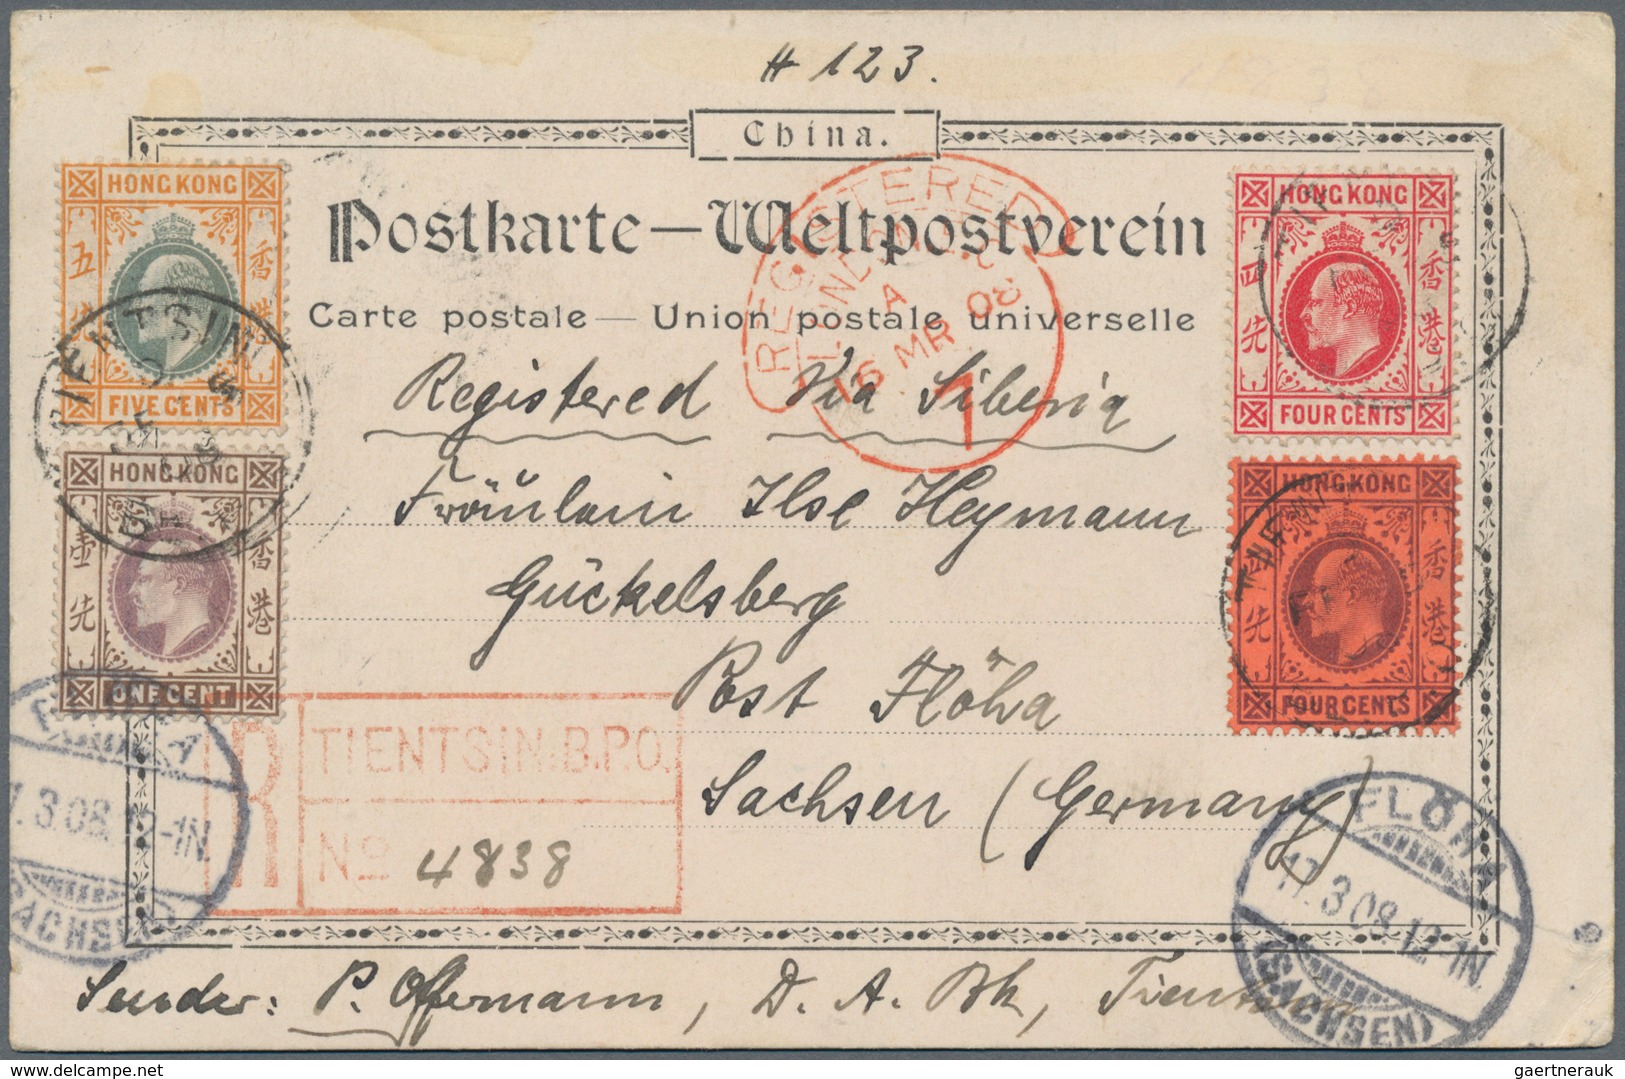 # 123.
China.
Postkarte — Weltpostverein
Carte postale — Union postale universelle
HONG KONG
五
香港
FIVE CENTS
HONG KONG
壹先
香港
ONE CENT
HONG KONG
四先
香港
FOUR CENTS
HONG KONG
先
香港
FOUR CENTS
TIENTSIN
REGISTERED
LONDON
A
16 MR 08
Registered Via Siberia
Fräulein Ilse Heymann
Gückelsberg
Post Flöha
Sachsen (Germany)
R
TIENTSIN.B.P.O.
No 4838
3.08.
-1N.
FLÖHA
17.3.08.12-1N.
(SACHSEN)
Sender: P. Offermann, D. A. Bk, Tientsin
www.delcampe.net
gaertnerauk